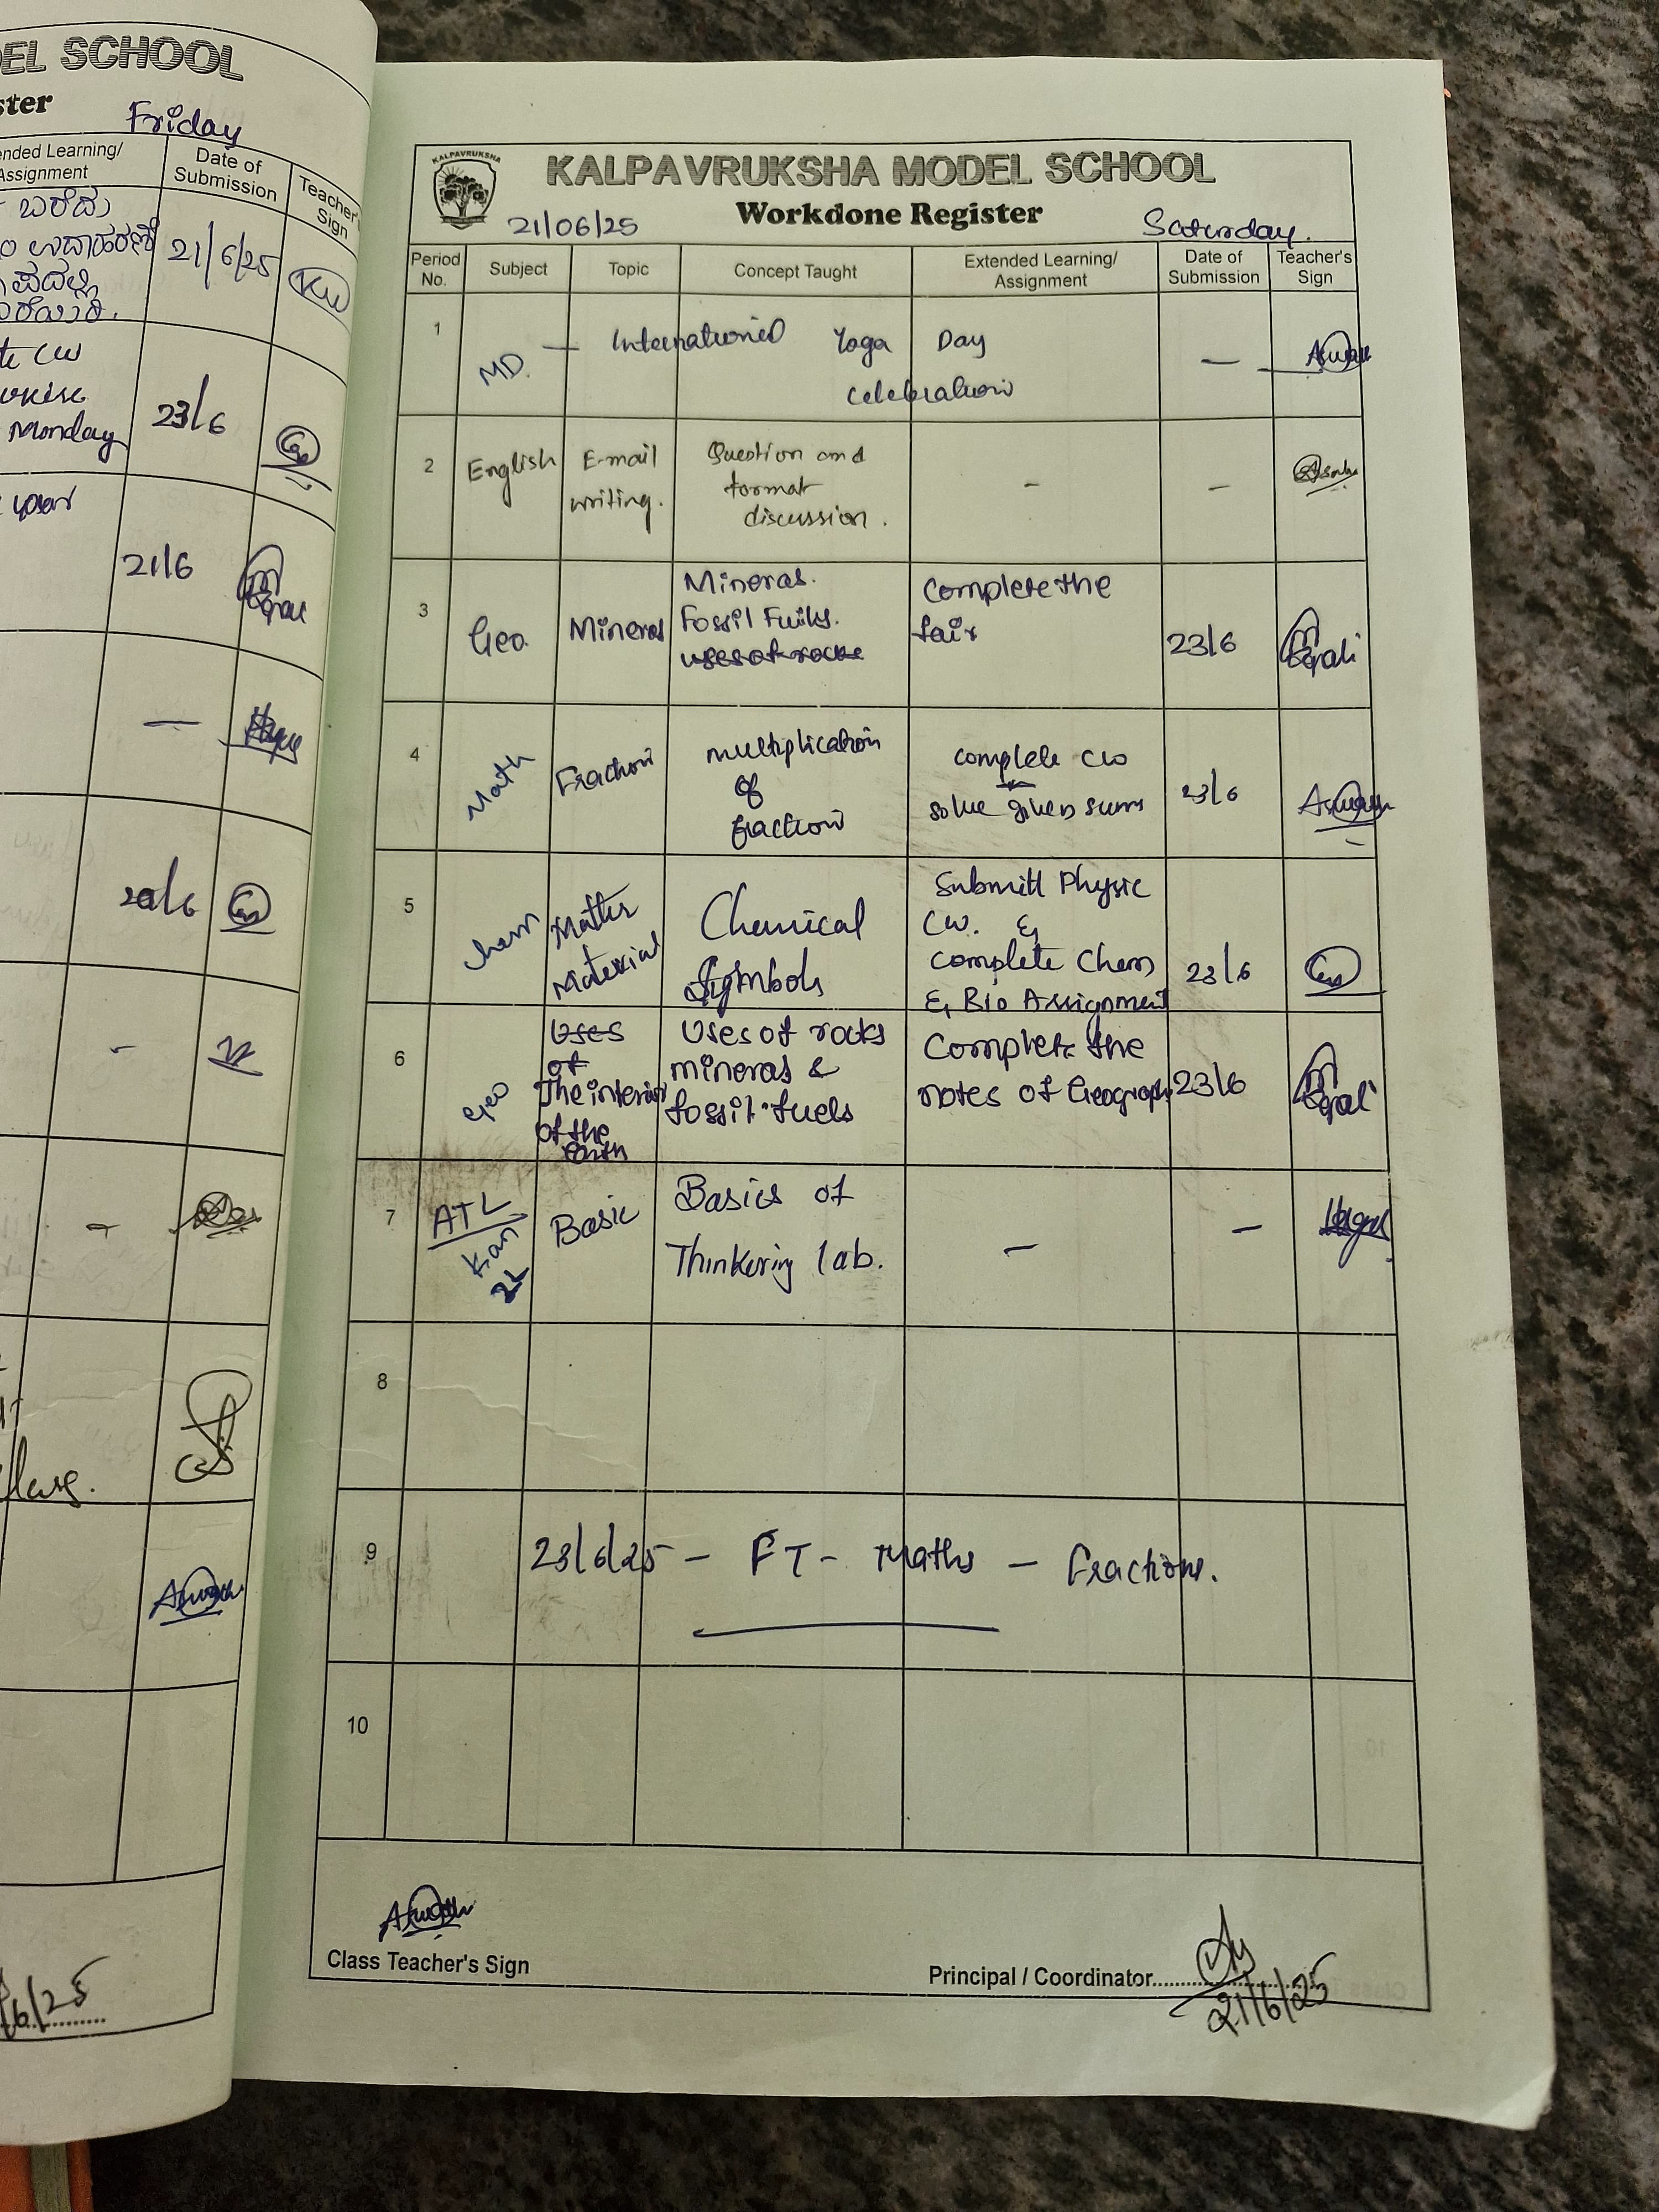 EL SCHOOL
ster
Friday
ended Learning/
Assignment
Date of
Submission
Teacher's
Sign
ಬರೆದು
21/6/25
te CW
Monday
23/6
year
21/6
—
20/6
-
-
6/25
KALPAVRUKSHA
KALPAVRUKSHA MODEL SCHOOL
Workdone Register
21/06/25
Saturday.
Period
No.
Subject
Topic
Concept Taught
Extended Learning/
Assignment
Date of
Submission
Teacher's
Sign
1
MD.
— International Yoga Day
celebration
—
2
English
E-mail
writing.
Question and
format
discussion.
-
-
3
Geo.
Mineral
Mineras.
Fossil Fuels.
uses of rocks
Complete the
fair
23/6
4
Math
Fraction
multiplication
of
fraction
complete cw
solve given sums
23/6
5
Chem
Matter
Material
Chemical
Symbols
Submitt Physic
CW. &
complete Chem
& Bio Assignment
23/6
6
Geo
Uses
of
The interior
of the
Earth
Uses of rocks
mineras &
fossil fuels
Complete the
notes of Geography
23/6
7
ATL
Kan
2L
Basic
Basics of
Thinkering lab.
—
—
8
9
23/6/25 — FT - Maths — Fractions.
10
Class Teacher's Sign
Principal / Coordinator
21/6/25